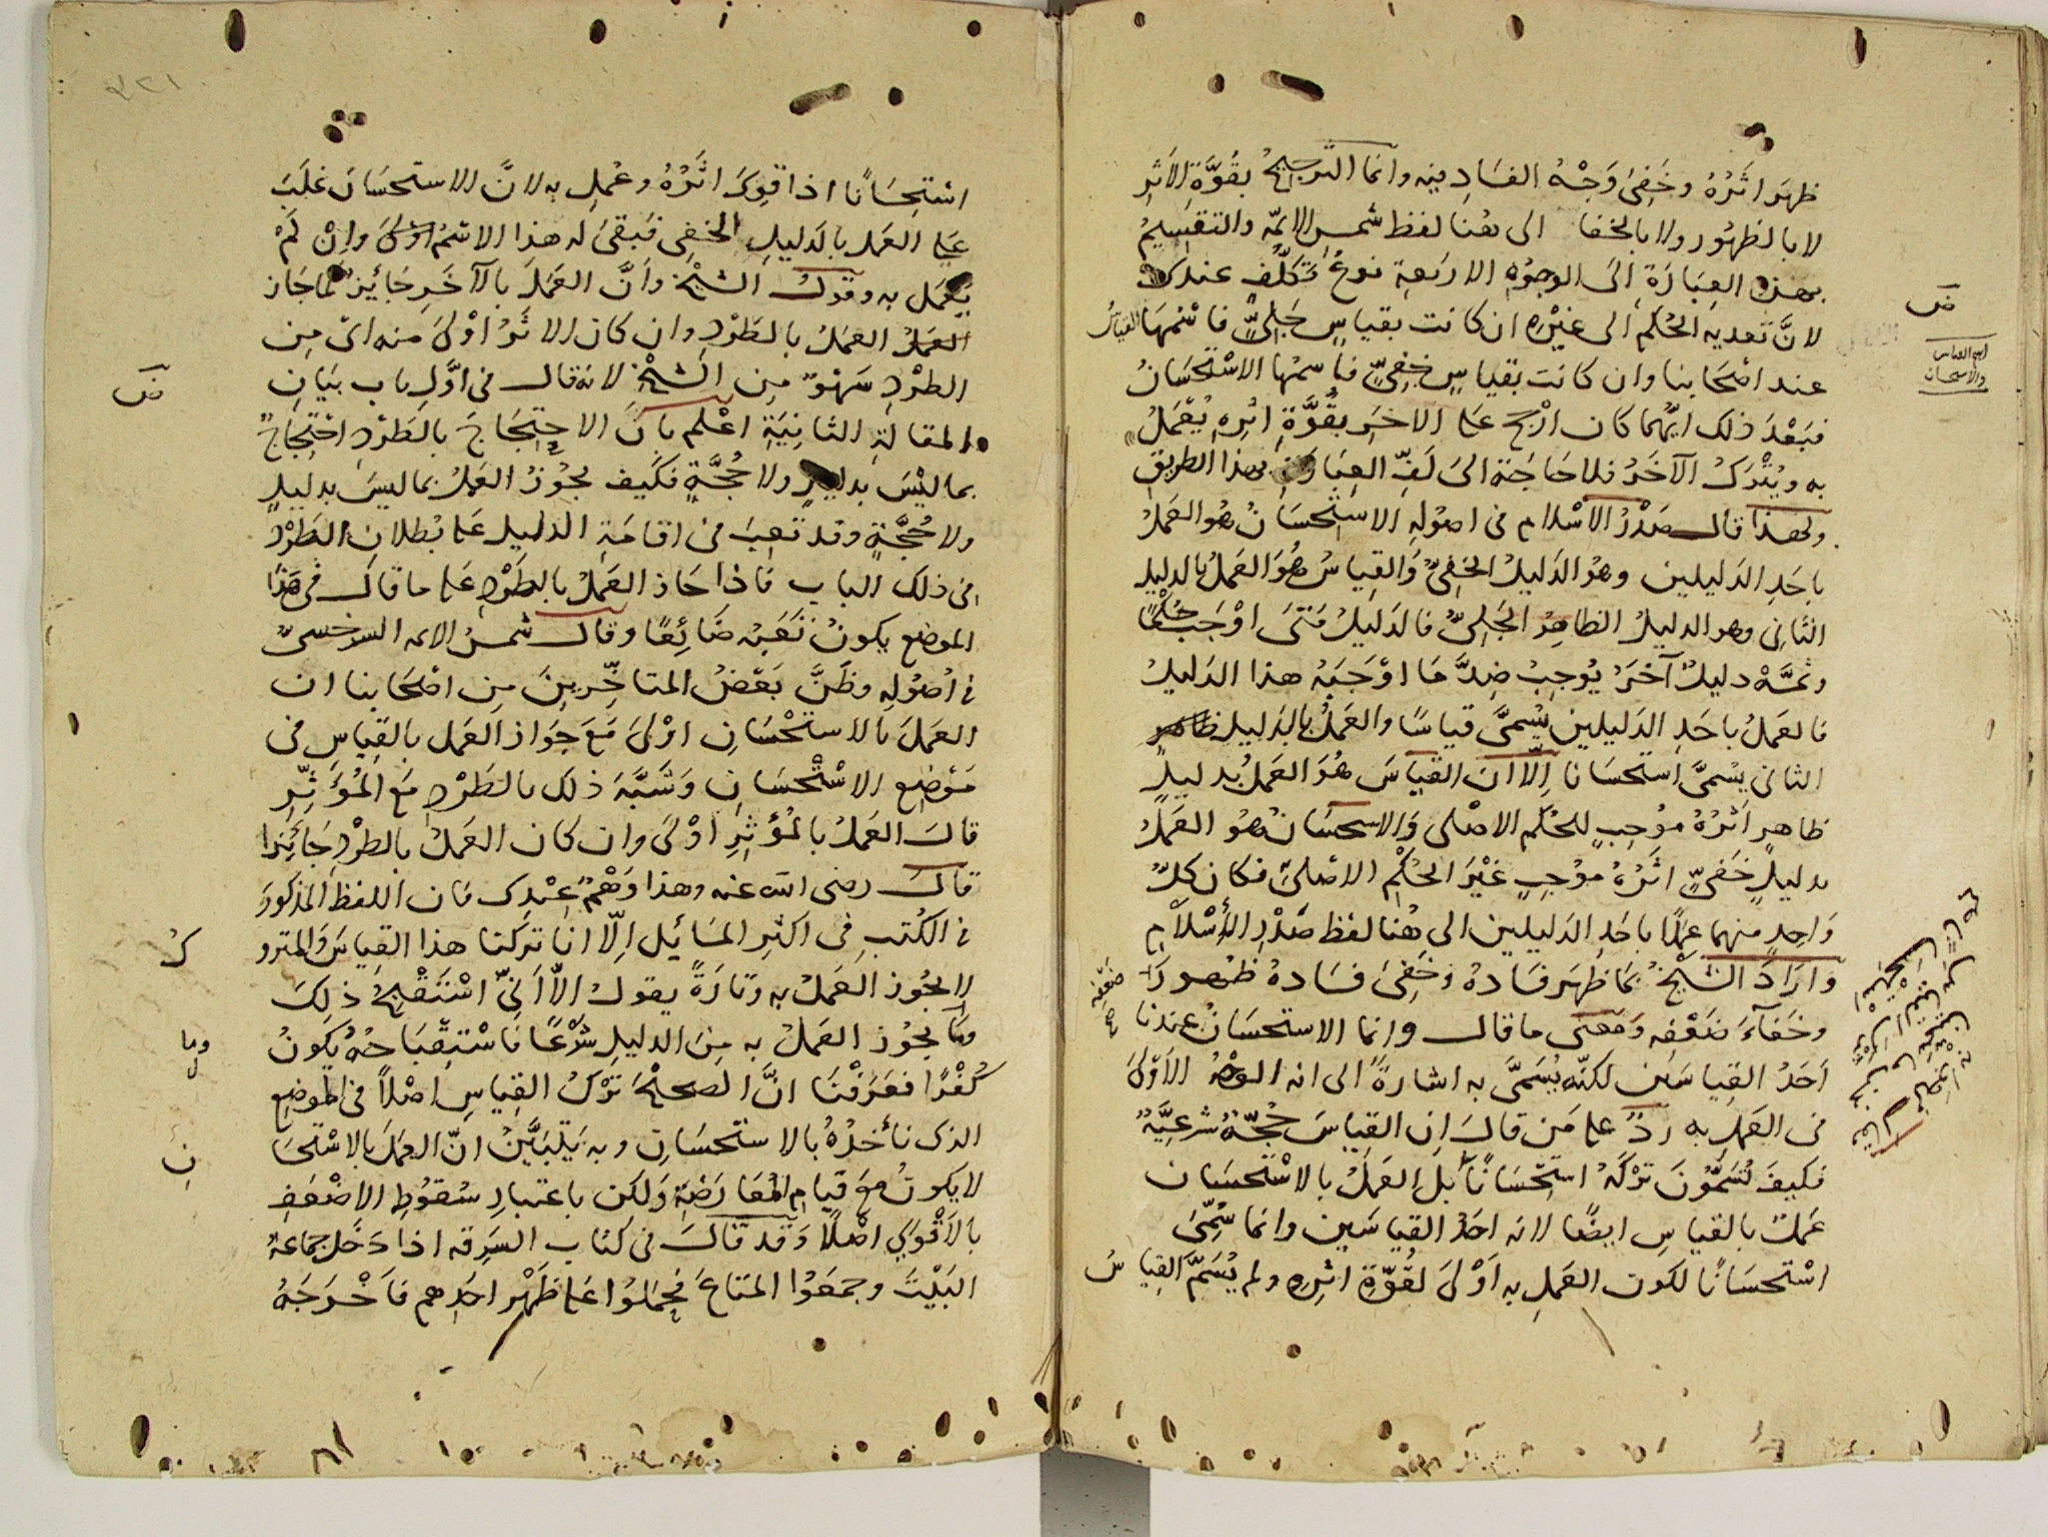 ظهر اثره وخفى وجه الفساد فيه وانما الترجيح بقوة الاثر
لا بالظهور ولا بالخفا الى هنا لفظ شمس الايمه والتقسيم
بهذه العبارة الى الوجوه الاربعة نوع تكلف عندى
لان تعديه الحكم الى غيره ان كانت بقياس جلي فاسمها القياس
عند اصحابنا وان كانت بقياس خفي فاسمها الاستحسان
فبعد ذلك ايهما كان ارجح على الاخر بقوة اثره يعمل
به ويترك الآخر فلا حاجة الى لف العبارة بهذا الطريق
ولهذا قال صدر الاسلام في اصوله الاستحسان هو العمل
باحد الدليلين وهو الدليل الخفي والقياس هو العمل بالدليل
الثاني وهو الدليل الظاهر الجلي فالدليل متى اوجب حكما
وثمه دليل آخر يوجب ضد ما اوجبه هذا الدليل
فالعمل باحد الدليلين يسمى قياسا والعمل بالدليل
الثاني يسمى استحسانا الا ان القياس هو العمل بدليل
ظاهر اثره موجب للحكم الاصلى والاستحسان هو العمل
بدليل خفي اثره موجب غير الحكم الاصلي فكان كل
واحد منهما عملا باحد الدليلين الى هنا لفظ صدر الاسلام
واراد الشيخ بما ظهر فساده وخفى فساده ظهور ضعفه
وخفآء ضعفه ومعنى ما قال وانما الاستحسان عندنا
احد القياسين لكنه يسمى به اشارة الى انه الوجه الاولى
في العمل به رد على من قال ان القياس حجة شرعية
فكيف تسمون تركه استحسانا بل العمل بالاستحسان
عمل بالقياس ايضا لانه احد القياسين وانما سمى
استحسانا لكون العمل به اولى لقوة اثره ولم يسم القياس
ابو العباس
والاستحسان
استحسانا اذا قوى اثره وعمل به لان الاستحسان غلب
على العمل بالدليل الخفي فبقى له هذا الاسم وان لم
يعمل به وقول الشيخ وان العمل بالآخر جائز كما جاز
العمل العمل بالطرد وان كان الاثر اولى منه اى من
الطرد سهو من الشيخ لانه قال في اول باب بيان
المقالة الثانية اعلم بان الاحتجاج بالطرد احتجاج
بما ليس بدليل ولا حجة فكيف يجوز العمل بما ليس بدليل
ولا حجة وقد تعب في اقامة الدليل على بطلان الطرد
في ذلك الباب فاذا جاز العمل بالطرد على ما قال في هذا
الموضع يكون تعبه ضائعا وقال شمس الايمه السرخسي
في اصوله وظن بعض المتاخرين من اصحابنا ان
العمل بالاستحسان اولى مع جواز العمل بالقياس في
موضع الاستحسان وشبه ذلك بالطرد مع المؤثر
قال العمل بالمؤثر اولى وان كان العمل بالطرد جائزا
قال رضى الله عنه وهذا وهم عندى فان اللفظ المذكور
في الكتب في اكثر المسائل الا انا تركنا هذا القياس والمتروك
لا يجوز العمل به وتارة يقول الا انى استقبح ذلك
وما يجوز العمل به من الدليل شرعا فاستقباحه يكون
كفرا فعرفنا ان الصحيح ترك القياس اصلا في الموضع
الذى نأخذ بالاستحسان وبه يتبين ان العمل بالاستحسان
لا يكون مع قيام المعارضة ولكن باعتبار سقوط الاضعف
بالاقوى اصلا وقد قال في كتاب السرقه اذا دخل جماعة
البيت وجمعوا المتاع فحملوا على ظهر احدهم فاخرجه